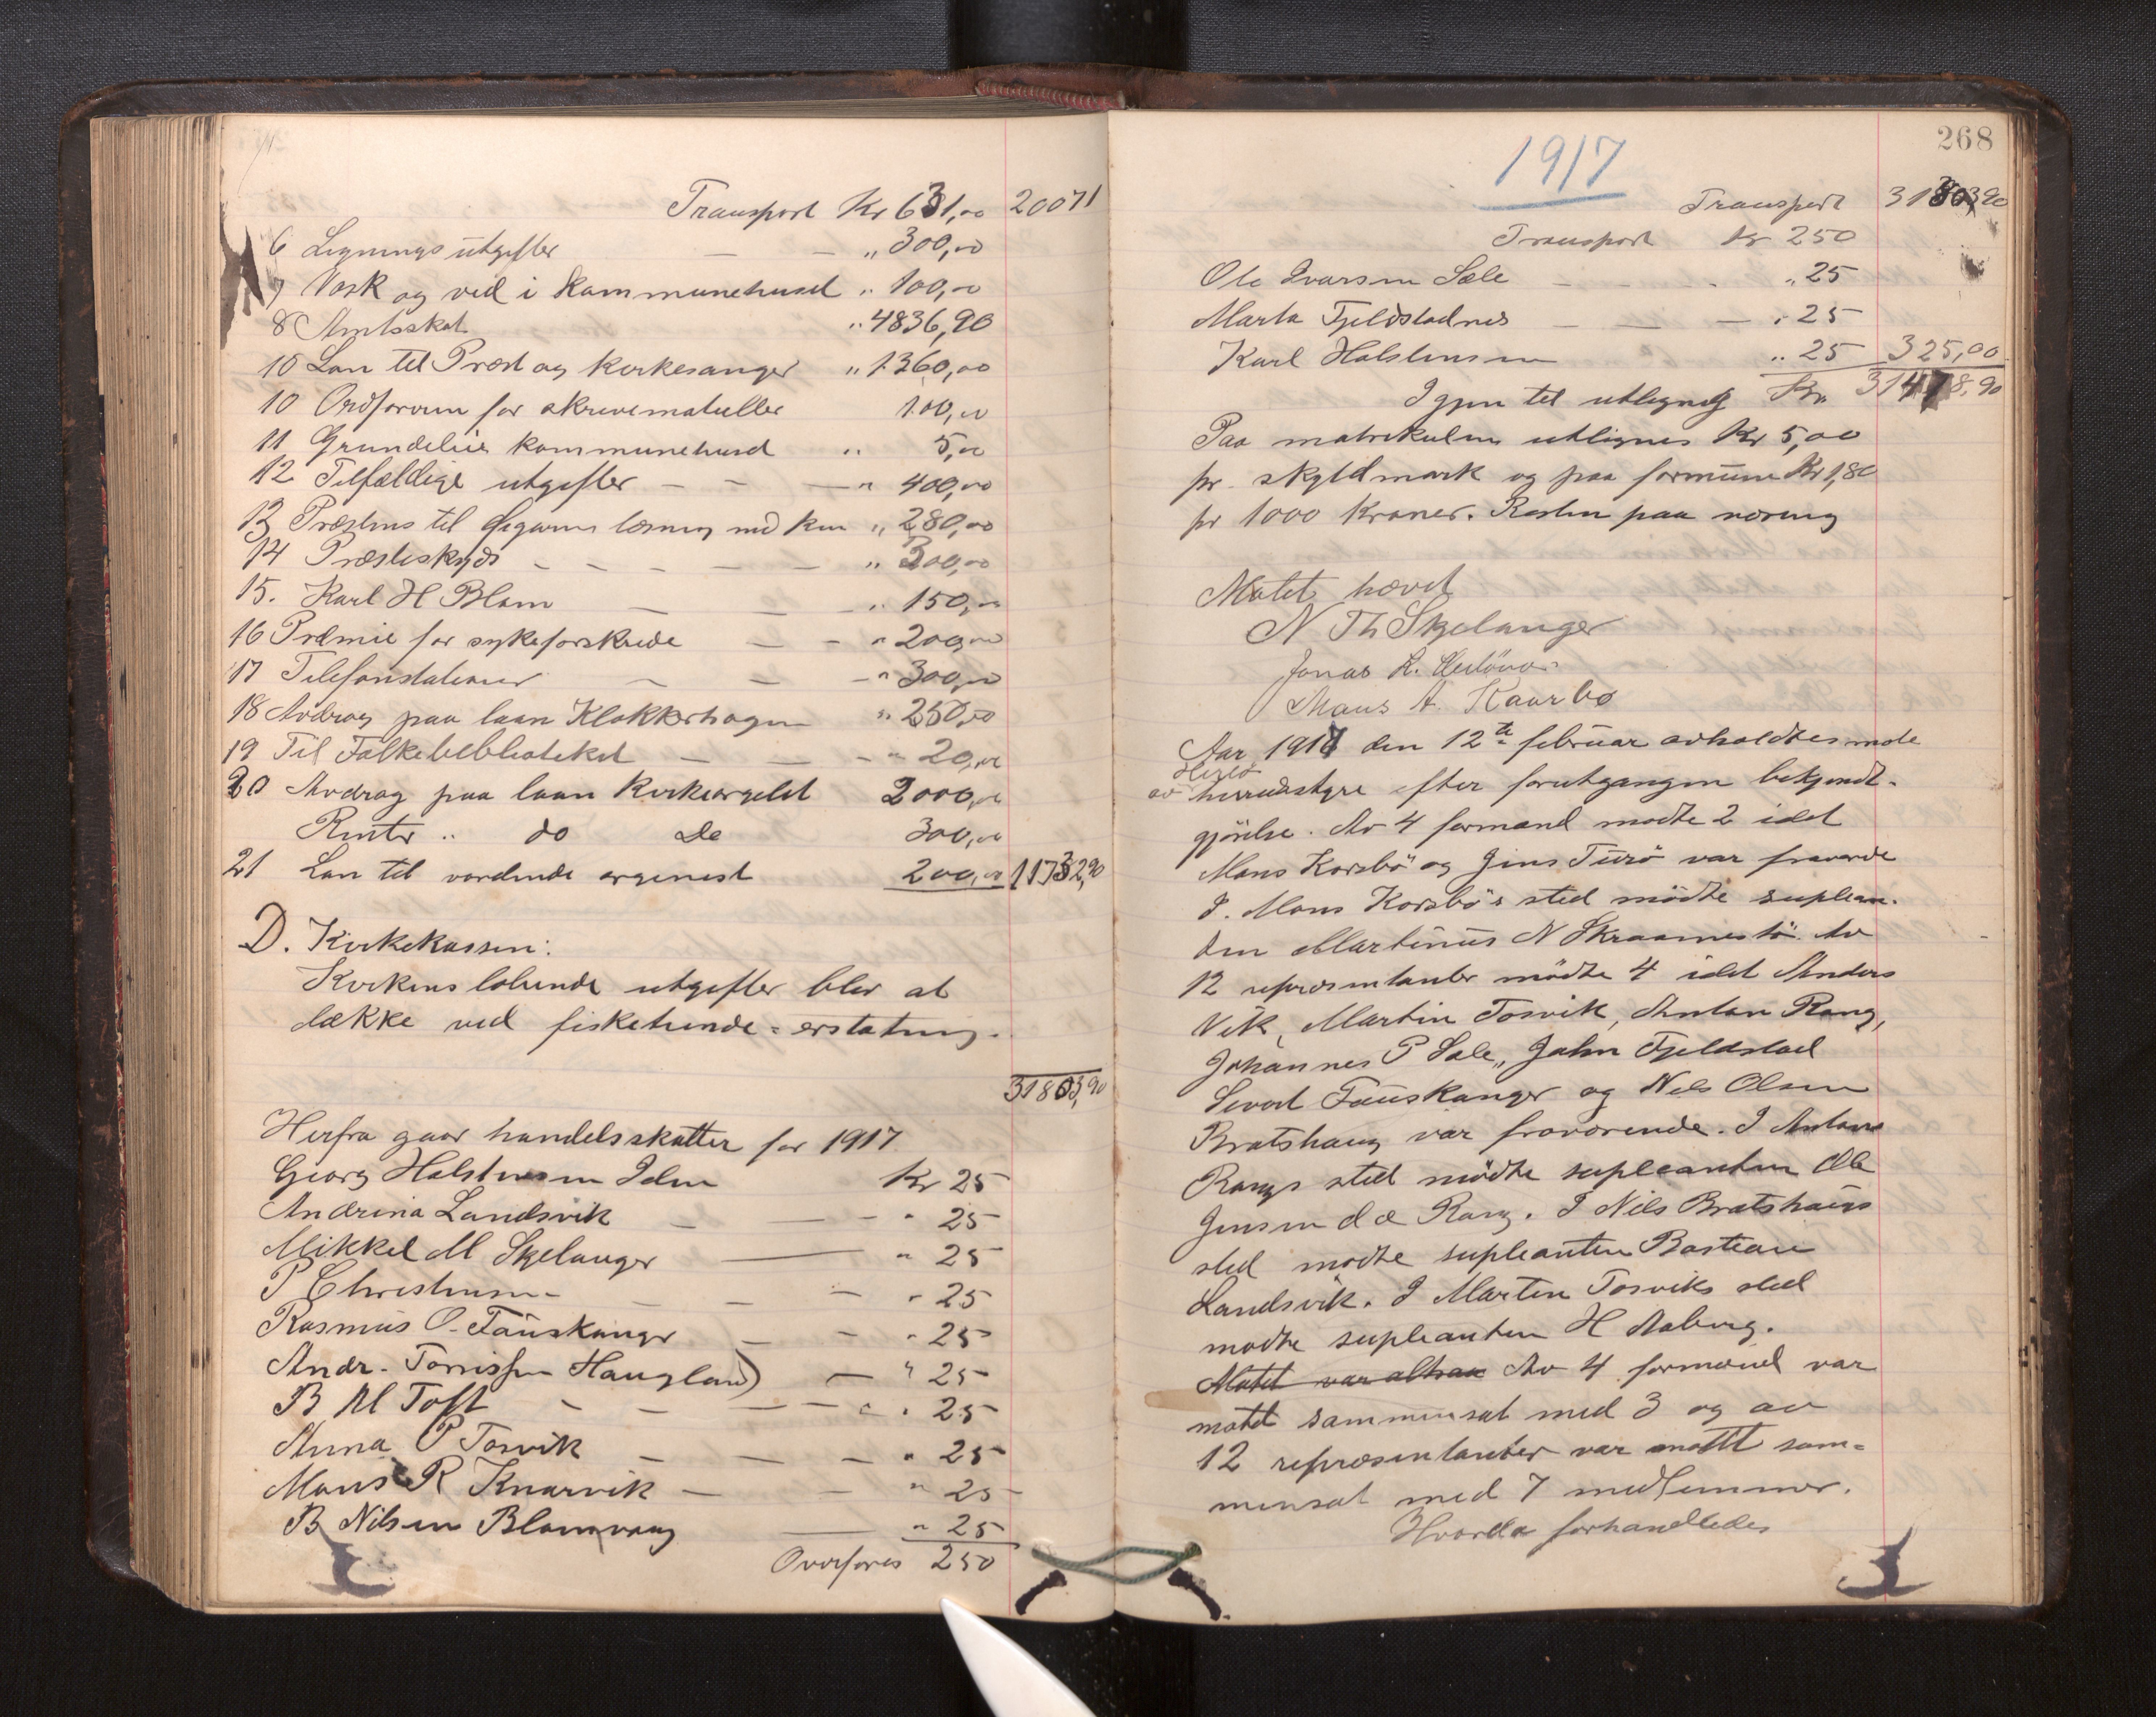 Transport Kr 631,00 20071
6 Ligningsutgifter — — „ 300,00
7 Vask og ved i kommunehuset „ 100,00
8 Amtsskat „ 4836,90
10 Løn til Præst og kirkesanger „ 1360,00
10 Ordføreren for skrivematriller 100,00
11 Grundeleie kommunehusd „ 5,00
12 Tilfældige utgifter — — — „ 400,00
13 Præstens til læsning med kon „ 280,00
14 Præsteskyds — — — — — „ 300,00
15. Karl H Blom — — „ 150,00
16 Præmie for sykeforskrede — — „ 200,00
17 Telefonstationer — — — „ 300,00
18 Avdrag paa laan Klokkerhagen „ 250,00
19 Til Folkebiblioteket — — — „ 20,00
20 Avdrag paa laan kirkeorgelet 2000,00
Renter „ do do 300,00
21 Løn til vordende organist 200,00 11732,90
D. Kirkekassen:
Kirkens løbende utgifter blir at
dække ved fisketiende-erstatning.
31803,90
Herfra gaar handelsskatter for 1917
Georg Halstensen Kr 25
Andrina Landsvik — — — „ 25
Mikkel M Skjelanger — „ 25
P Christensen — — — „ 25
Rasmus O. Fauskanger — — „ 25
Andr. Tornissen Haugland — „ 25
B M Toft — — — — „ 25
Anna P Tosvik — — — „ 25
Mons R Knarvik — — „ 25
B Nilsen Blomvaag — „ 25
Overføres 250
268
1917
Transport 31803,90
Transport Kr 250
Ole Ivarsen Sæle — — „ 25
Marta Fjeldstadnes — — — „ 25
Karl Halstensen „ 25 325,00
Igjen til utligning Kr 31478,90
Paa matrikulen utlignes Kr 5,00
pr. skyldmark og paa formuen Kr 1,80
pr 1000 kroner. Resten paa næring
Møtet hævet
N Th Skjelanger
Jonas L. Herløvær
Mons A. Kaarbø
Aar 1917 den 12te februar avholdtes møte
av Herlø herredsstyre efter forutgangen bekjendt-
gjörelse. Av 4 formænd mødte 2 idet
Mons Korsbö og Jens Turö var fraværde
I. Mons Korsbö's sted mödte suplean-
ten Martinus N Skraamestö. Av
12 repræsentanter mödte 4 idet Anders
Vik, Martin Tosvik, Anton Rong,
Johannes P Sæle, John Fjeldstad
Sivert Fauskanger og Nils Olsen
Bratshaug var fraværende. I Antons
Rongs sted mödte supleanten Ole
Jensen d e Rong. I Nils Bratshaugs
sted mødte supleanten Bastian
Landsvik. I Martin Tosviks sted
mødte supleanten H Aaberg.
Møtet var altsaa Av 4 formænd var
møtet sammensat med 3 og av
12 repræsentanter var møttt sam-
mensat med 7 medlemmer.
Hvorda forhandledes